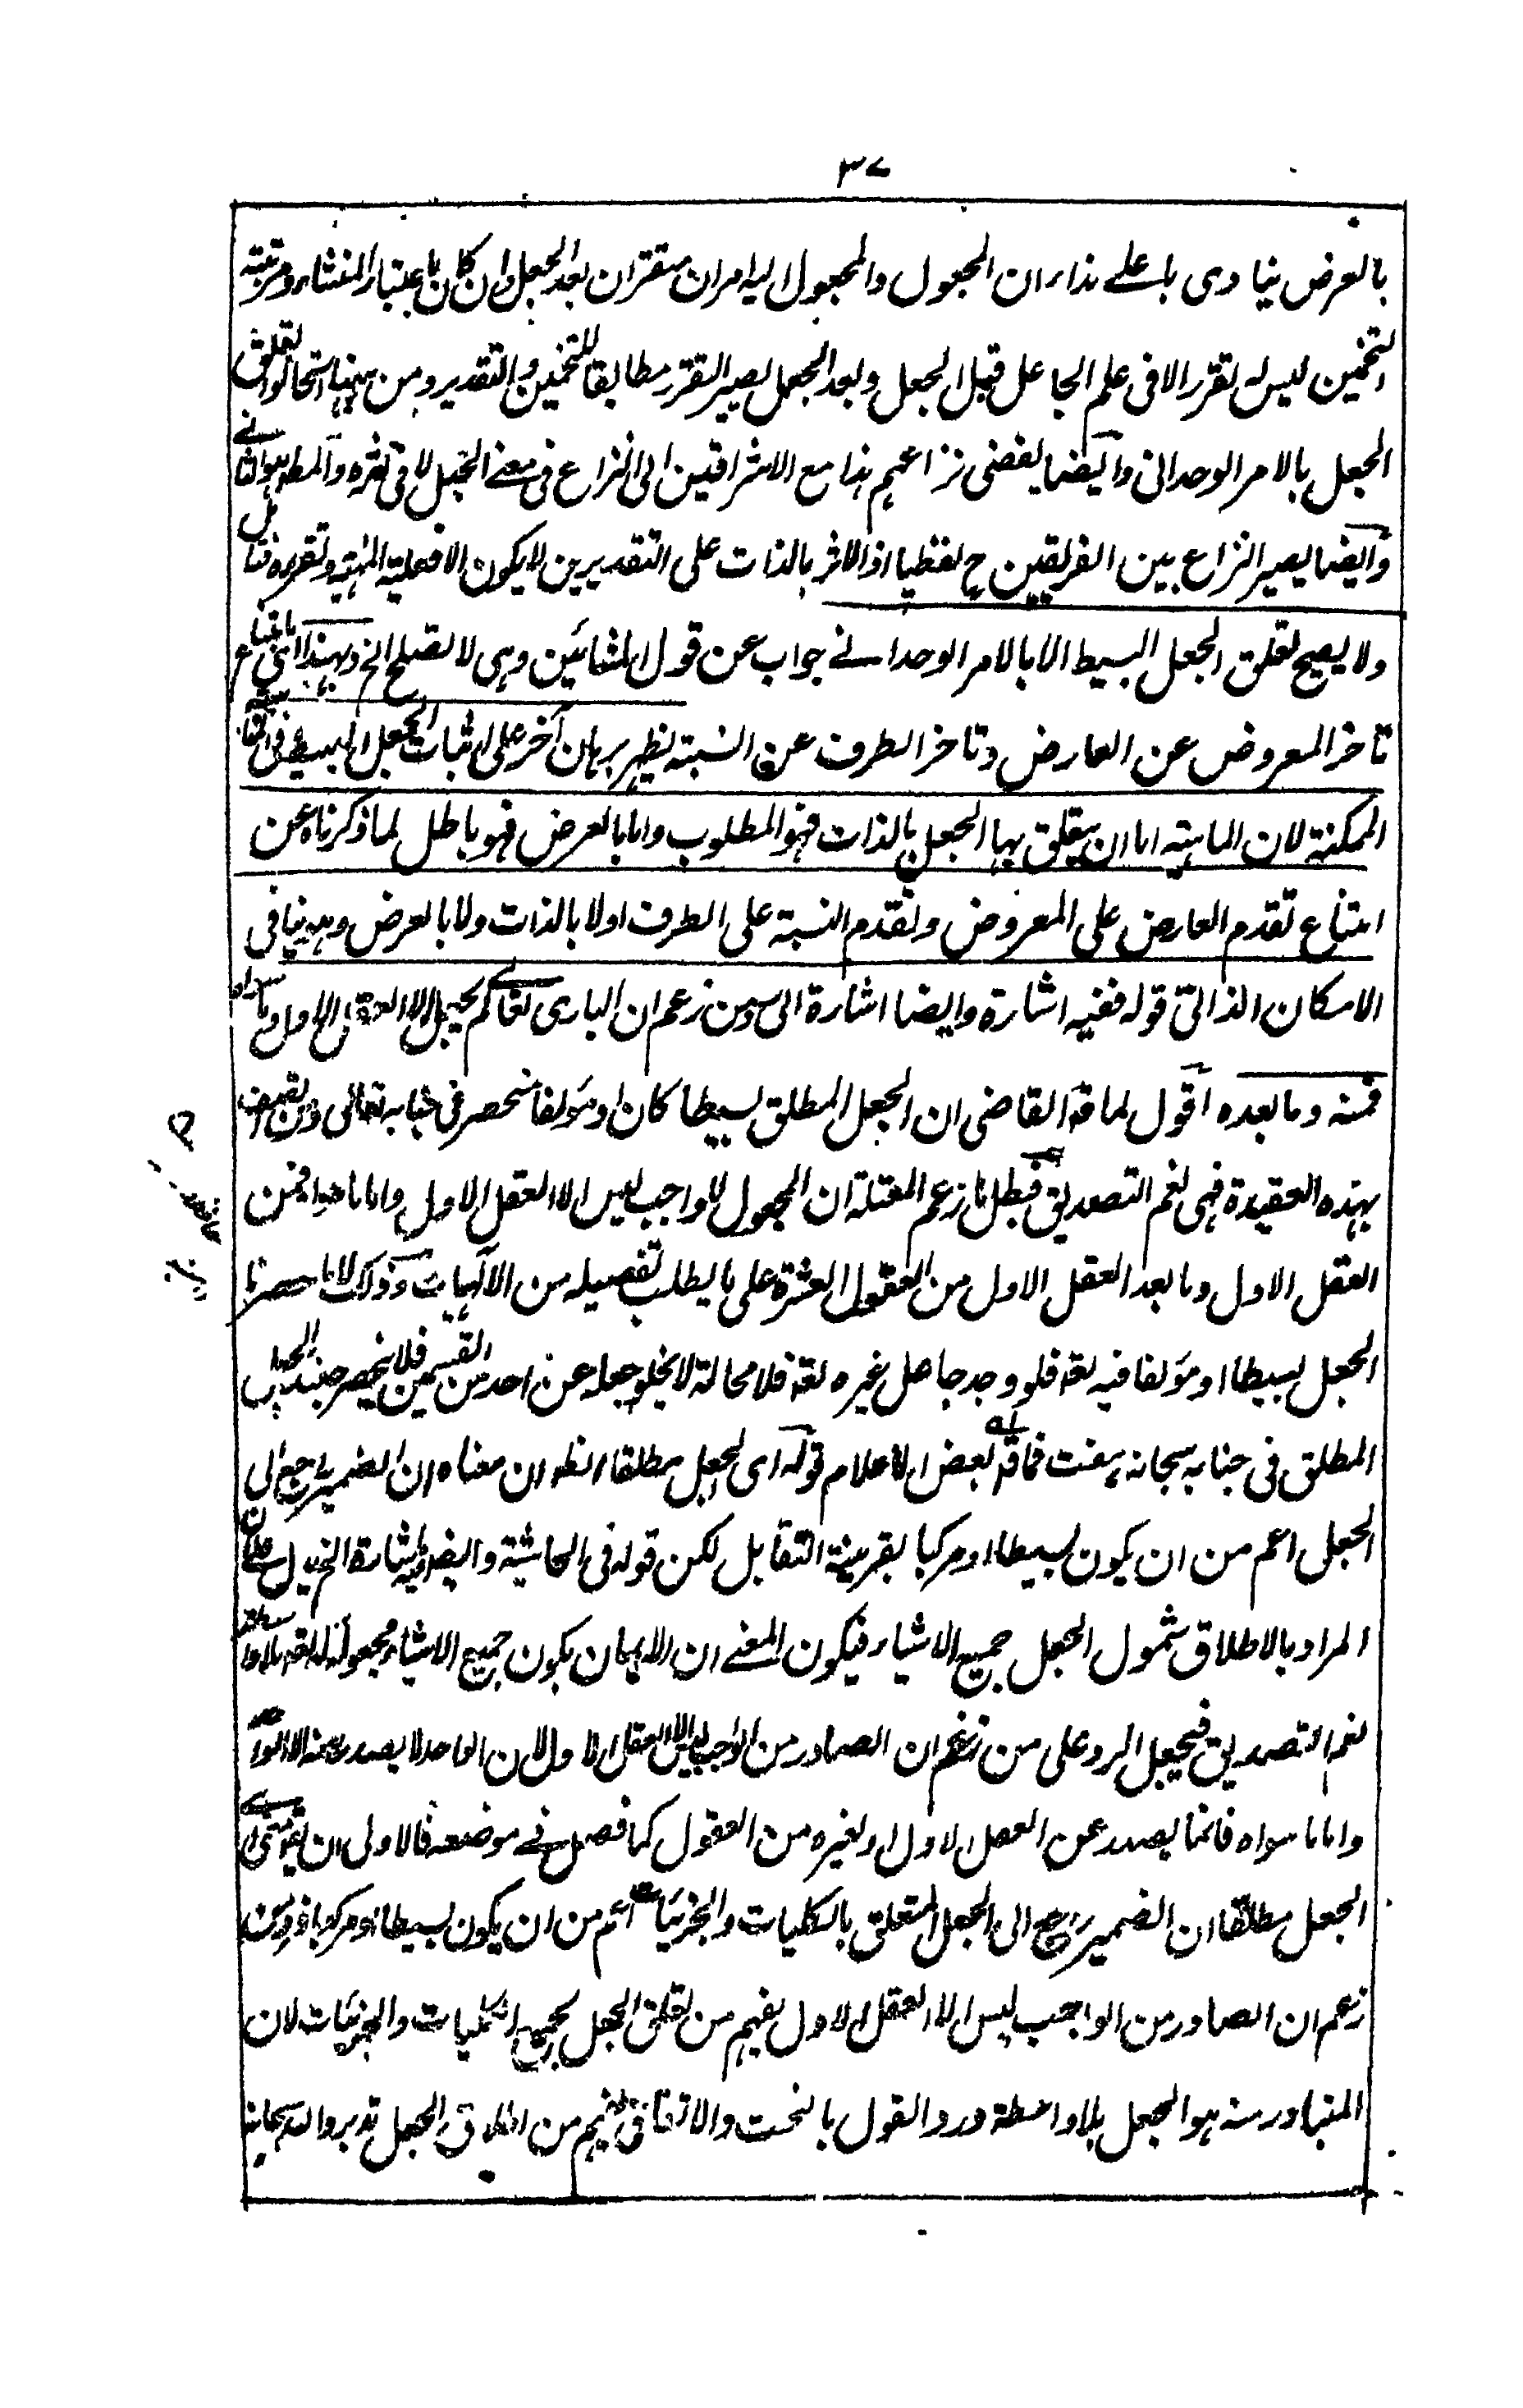 ٣٧
بالعرض ينادى باعلے نداء ان المجعول والمجعول اليه امران متقرران بعد الجعل وان كان باعتبار المنشاء ومرتبة
التخمين ليس له تقرر الا فى علم الجاعل قبل الجعل وبعد الجعل يصير التقرر مطابقا للتخمين والتقدير ومن ههنا استحالوا تعلق
الجعل بالامر الوحدانى وايضا يفضى نزاعهم هذا مع الاشراقيين الى النزاع فى معنے الجعل لا فى اثره والمطلوب هو الثانے
وايضا يصير النزاع بين الفريقين ح لفظيا اذ الاثر بالذات على التقديرين لا يكون الا فعلية المهية وتقرره فتامل
ولا يصح تعلق الجعل البسيط الا بالامر الوحدانے جواب عن قول المشائين وهى لا تصلح الخ وبهذا اى بامتناع
تاخر المعروض عن العارض وتاخر الطرف عن النسبة يظهر برهان آخر على اثبات الجعل البسيط فى
الممكنة لان الماهية اما ان يتعلق بها الجعل بالذات فهو المطلوب واما بالعرض فهو باطل لما ذكرناه عن
امتناع تقدم العارض على المعروض وتقدم النسبة على الطرف اولا بالذات ولا بالعرض وهو ينافى
الامكان الذاتى قوله ففيه اشارة وايضا اشارة الى من زعم ان البارى تعالے لم يجعل الا العقل الاول وما سواه
فمنه وما بعده اقول لما قال القاضى ان الجعل المطلق بسيطا كان او مؤلفا منحصر فى جنابه تعالى
بهذه العقيدة فهى نعم التصديق فبطل ما زعم ان المجعول للواجب ليس الا العقل الاول واما ما سواه فمن
العقل الاول وما بعد العقل الاول من العقول العشرة على ما يطلب تفصيله من الآلهيات وذلك لانا حصرنا
الجعل بسيطا او مؤلفا فيه تعالى فلو وجد جاعل غيره تعالى فلا محالة لا يخلو جعله عن احد من القسمين فلا ينحصر الجعل
المطلق فى جنابه سبحانه هفت فما قال بعض الاعلام قوله اى الجعل مطلقا الظاهر ان معناه ان الضمير راجع الى
الجعل اعم من ان يكون بسيطا او مركبا بقرينة التقابل لكن قوله فى الحاشية وايضا فيه اشارة الخ يدل على ان
المراد بالاطلاق شمول الجعل جميع الاشياء فيكون المعنے ان الايمان بكون جميع الاشياء مجعولة له تعالى بلا واسطة
نعم التصديق فيجعل الرد على من زعم ان الصادر من الواجب ليس الا العقل الاول لان الواحد لا يصدر منه الا الواحد
واما ما سواه فانما يصدر عن العقل الاول او لغيره من العقول كما فصل فے موضعه فالاولى ان يقال معنى
الجعل مطلقا ان الضمير راجع الى الجعل المتعلق بالكليات والجزئيات اعم من ان يكون بسيطا او مركبا فرد من
زعم ان الصادر من الواجب ليس الا العقل الاول يفهم من تعلق الجعل بجميع الكليات والجزئيات لان
المتبادر منه هو الجعل بلا واسطة ورد القول بالبخت والاتفاق يفهم من اطلاق الجعل تدبر والله سبحانه